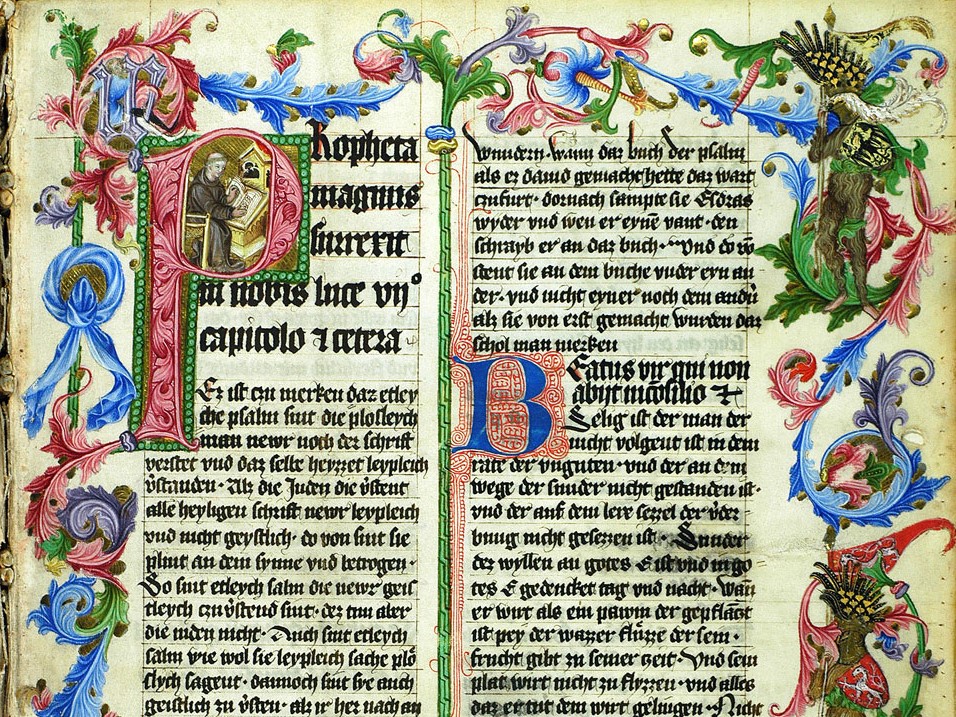 Propheta
magnus
surrexit
in nobis luce vijº
capitolo ⁊ cetera
Ez ist czu merken daz etley
che psalm sint die plosleych
man newr noch der schrift
verstet vnd daz selbe heysset leypleich
v̈standen · Alz die Juden die v̈stent
alle heyligen schrift newr leypleich
vnd nicht geystlich · do von sint sie
plint an dem synne vnd betrogen ·
So sint etleych salm die newr geis
tleych czu v̈stend sint · der tun aber
die iuden nicht · Auch sint etleych
salm wie wol sie leypleich sache plö
slych sagent · dannoch sint sye auch
geistlich zu v̈sten · alz ir her nach an
wundern · wann daz buch der psalm
als er dauid gemacht hette daz wart
czufurt · dornach sampte sie Esdras
wyder vnd wen er eynē vant · den
schrayb er an daz buch · Vnd do vō
stent sie an dem buche vnder ein an
der · vnd nicht eyner noch dem andn̄
alz sie von erst gemacht wurden daz
schol man merken
Beatus vir qui non
abijt in cōsilio ⁊
Selig ist der man der
nicht volgent ist in dem
rate der vnguten · vnd der an dem
wege der sunder nicht gestanden ist ·
vnd der auf dem lere sezzel der v̈der
bnug nicht gesezzen ist · Sunder
der wyllen an gotes E ist vnd in go
tes E gedencket tag vnd nacht · Wan
er wirt als ein pawm der gepflāczt
ist pey der wazzer flüzze der sein ·
frucht gibt zu seiner czeit · Vnd sein
plat wirt nicht zu flyzzen · vnd alles
daz er tut dem wirt gelingen · Nicht